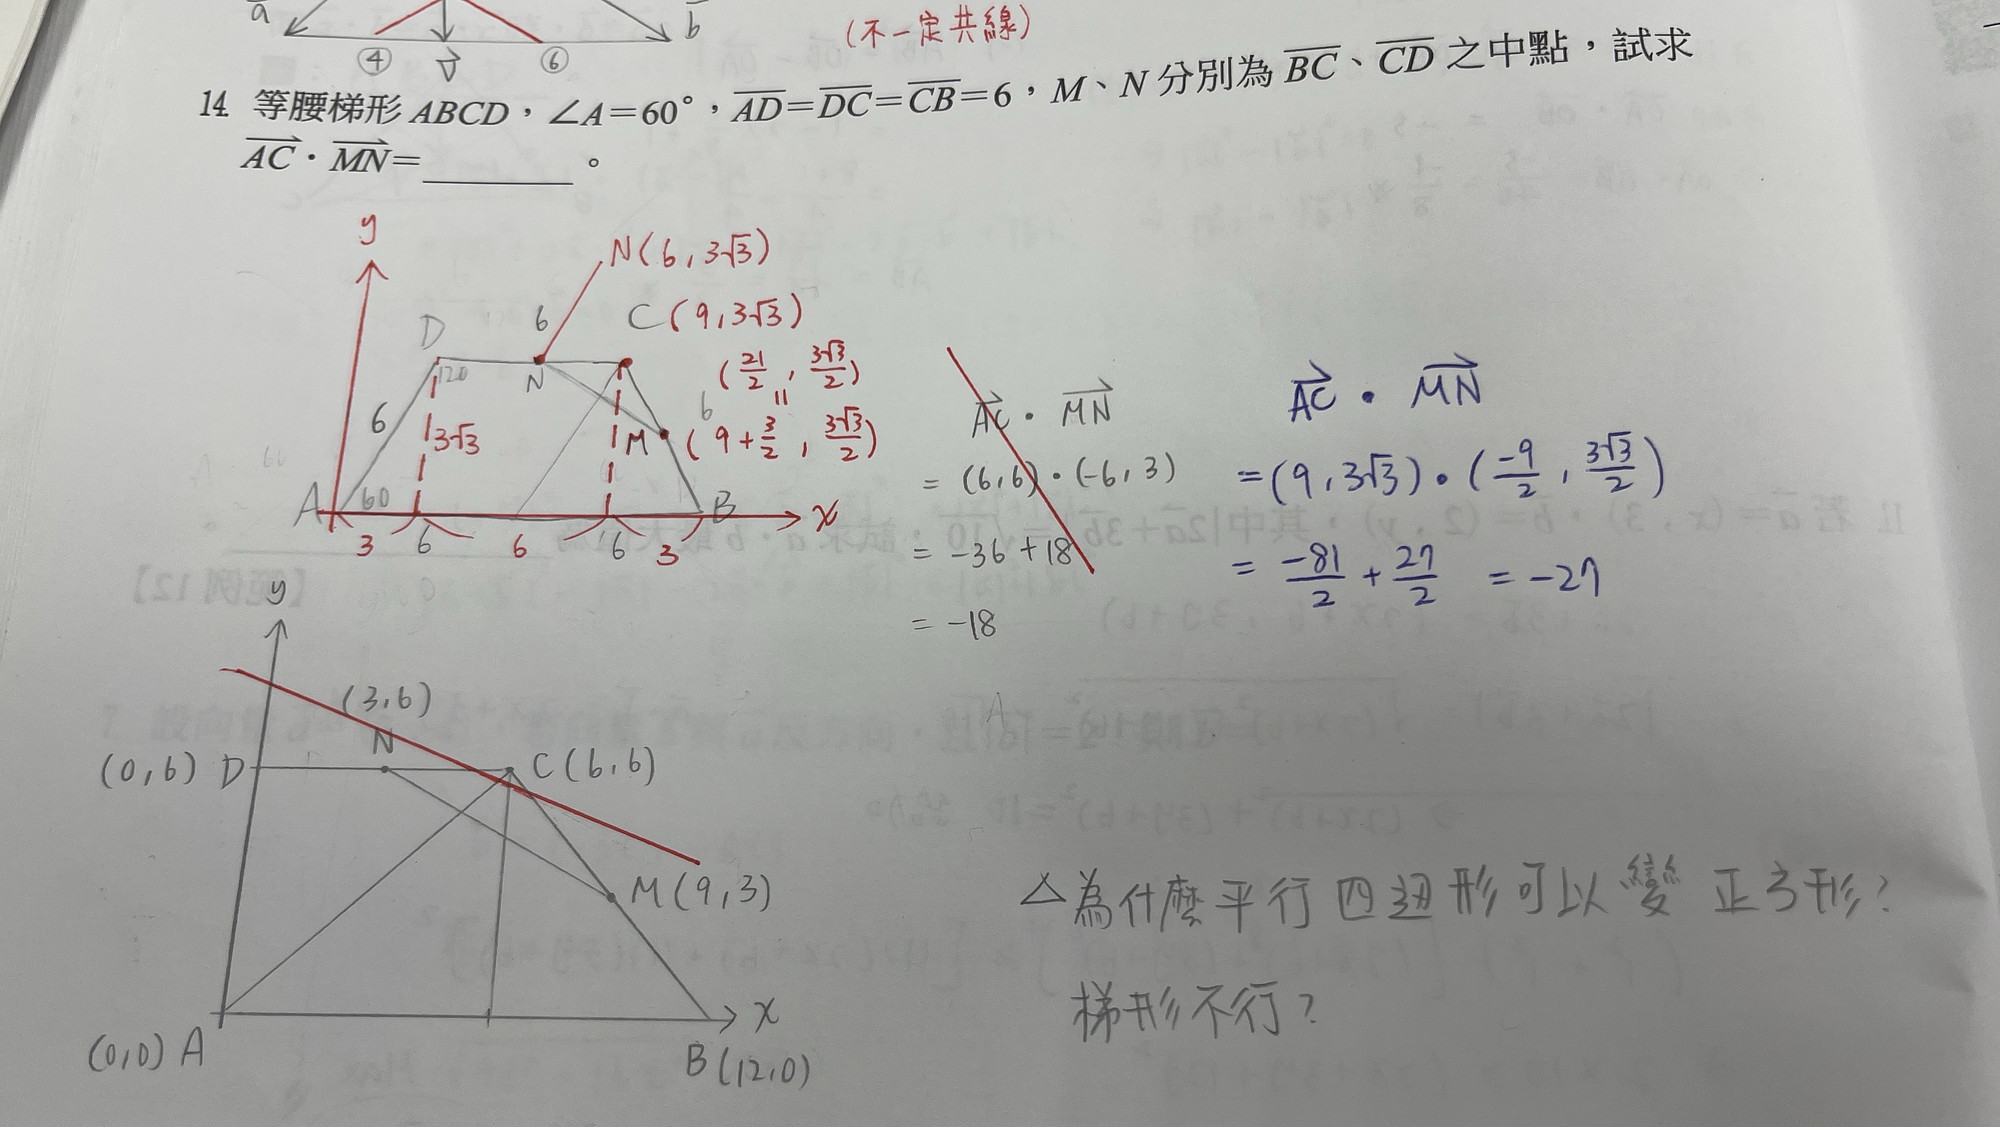 a
b
④
V
⑥
(不一定共線)
14 等腰梯形 ABCD，∠A=60°，AD=DC=CB=6，M、N 分別為 BC、CD 之中點，試求
AC · MN=________。
y
N(6,3√3)
D
6
C(9,3√3)
120
N
(21/2, 3√3/2)
=
6
6
3√3
M
(9+3/2, 3√3/2)
A
60
B
x
3
6
6
6
3
AC · MN
= (6,6)·(-6,3)
= -36+18
= -18
AC · MN
=(9,3√3)·(-9/2, 3√3/2)
= -81/2 + 27/2 = -27
y
(3,6)
N
(0,6) D
C(6,6)
M(9,3)
x
(0,0) A
B(12,0)
A
△為什麼平行四邊形可以變正方形?
梯形不行?